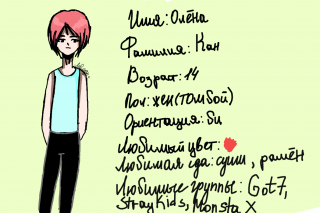 Имя: Олёна
Фамилия: Кан
Возраст: 14
Пол: жен(томбой)
Ориентация: би
Любимый цвет:
Любимая еда: суши, рамён
Любимые группы: Got7,
Stray Kids, Monsta X